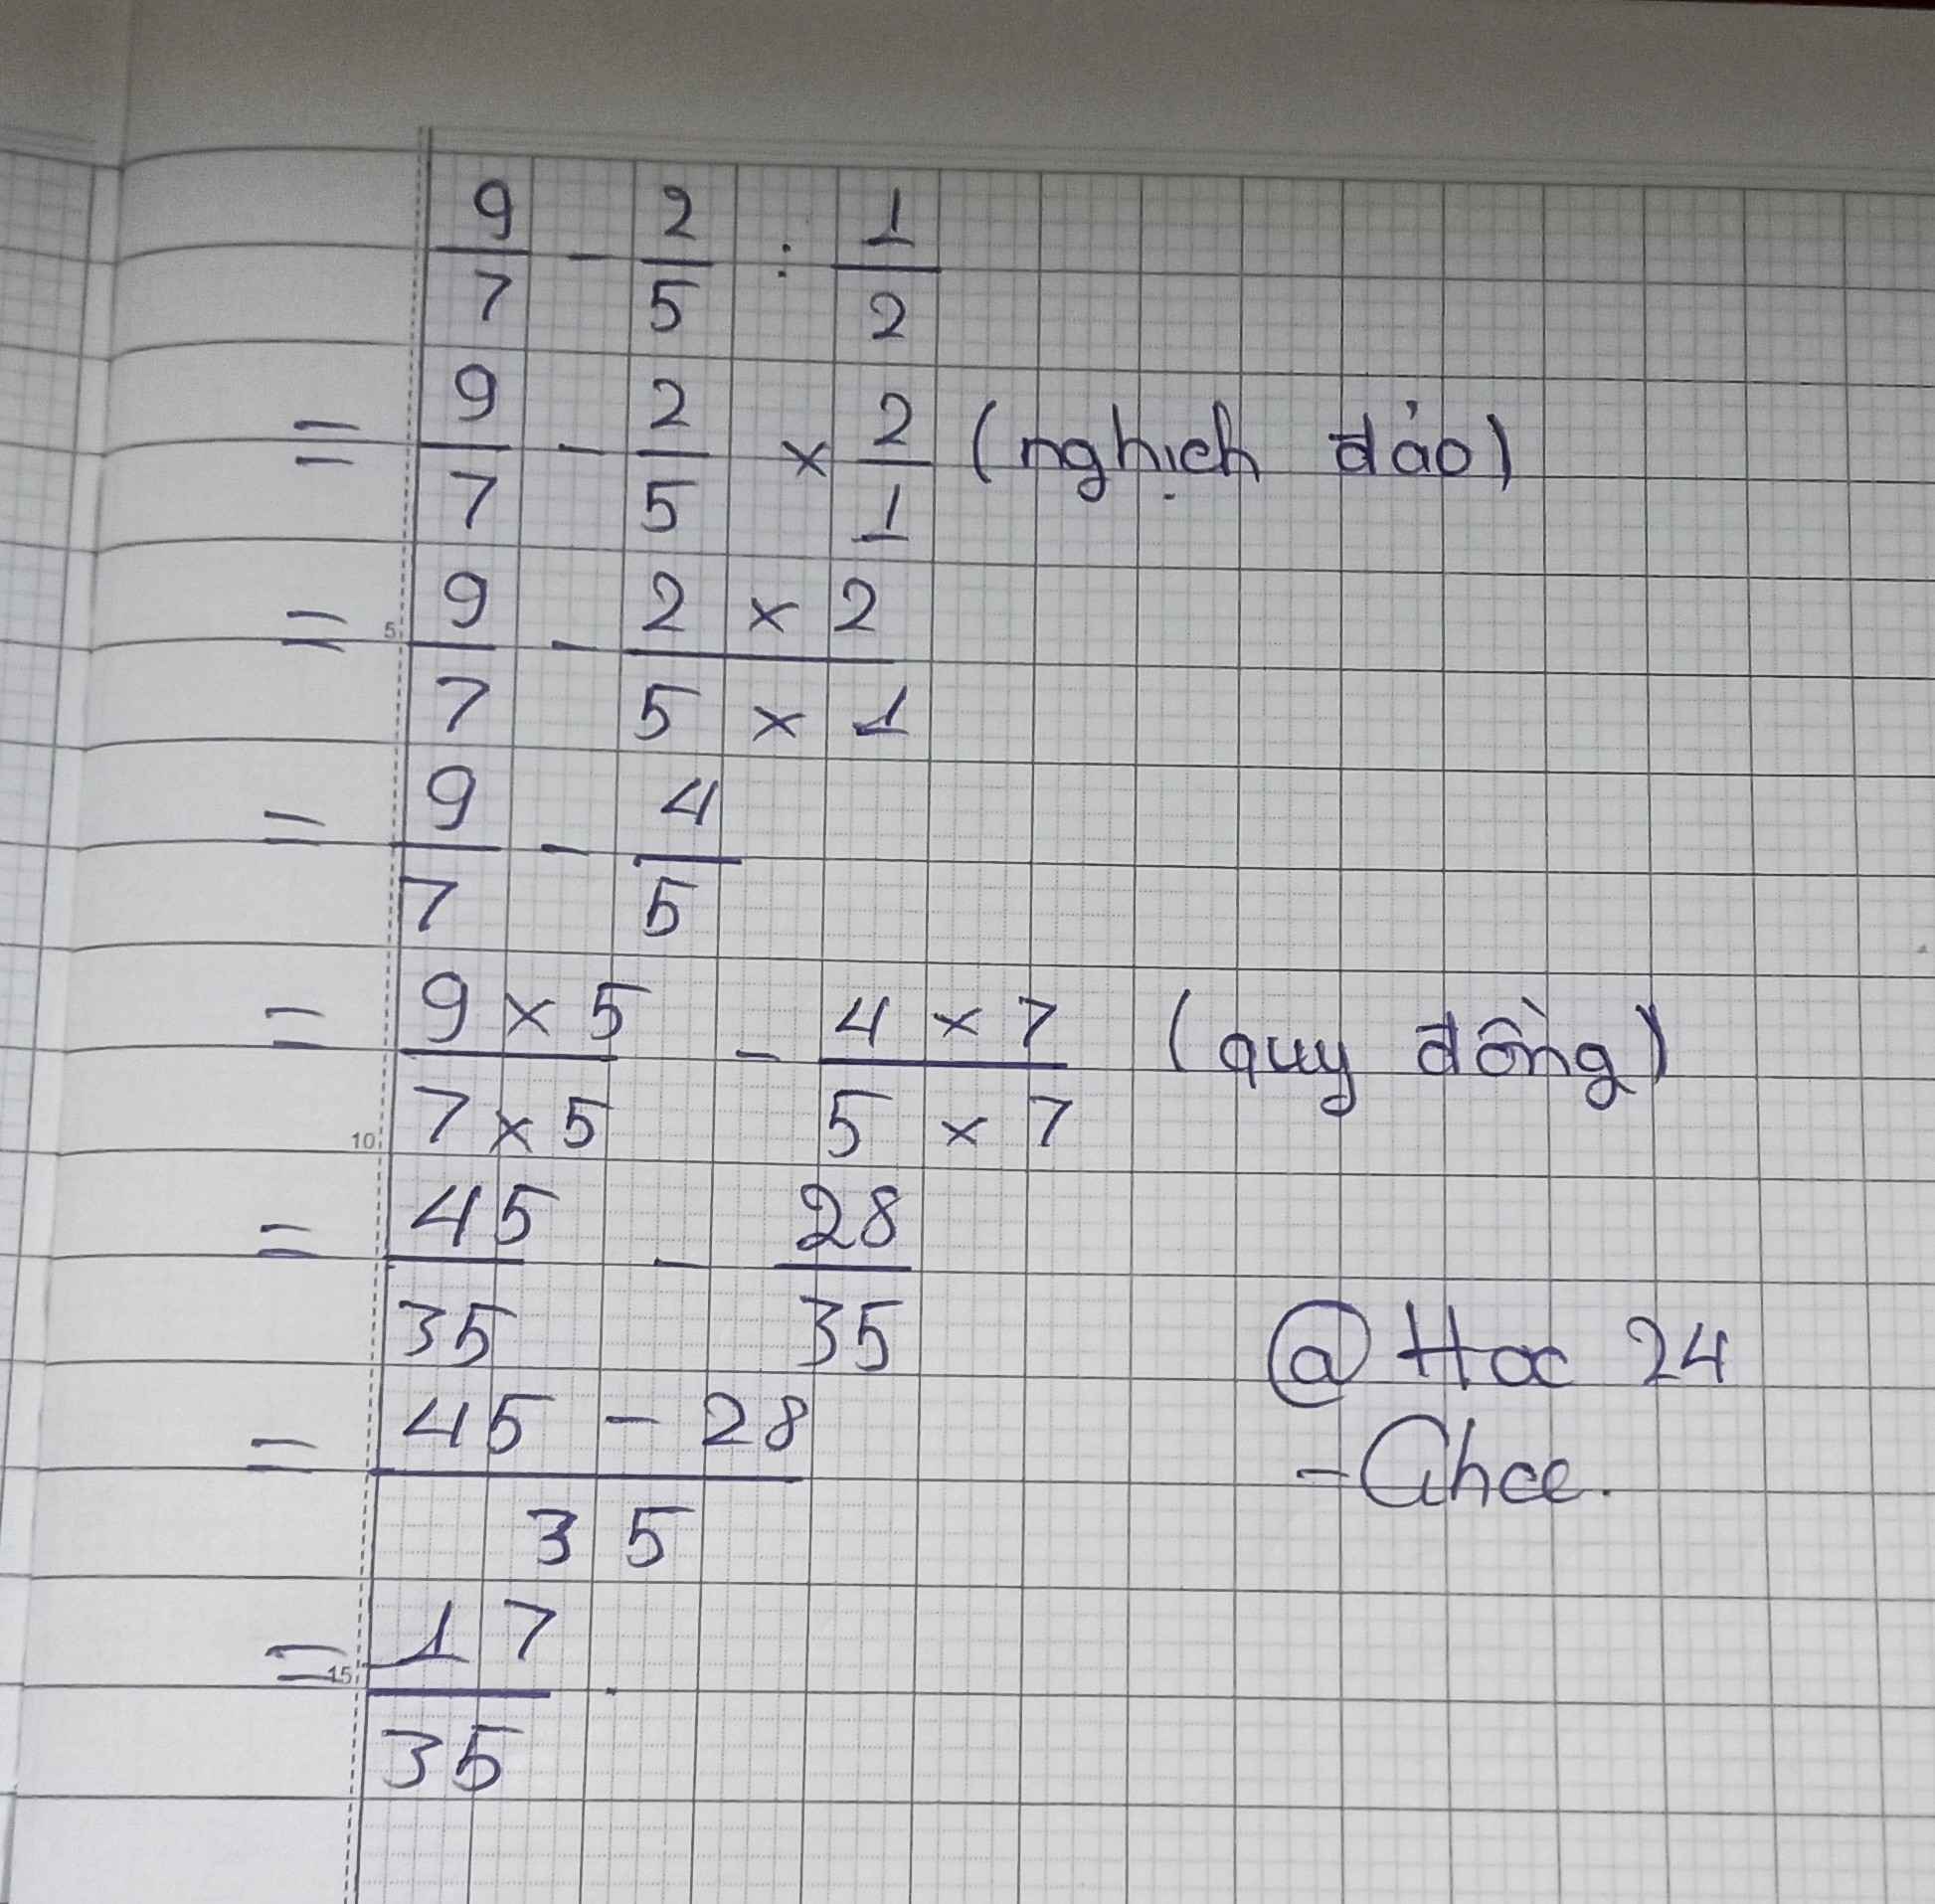 9/7 - 2/5 : 1/2
= 9/7 - 2/5 × 2/1 (nghịch đảo)
= 9/7 - 2 × 2 / 5 × 1
5
= 9/7 - 4/5
= 9 × 5 / 7 × 5 - 4 × 7 / 5 × 7 (quy đồng)
10
= 45/35 - 28/35
= 45 - 28 / 35
@ Hoc 24
= 17/35 .
15